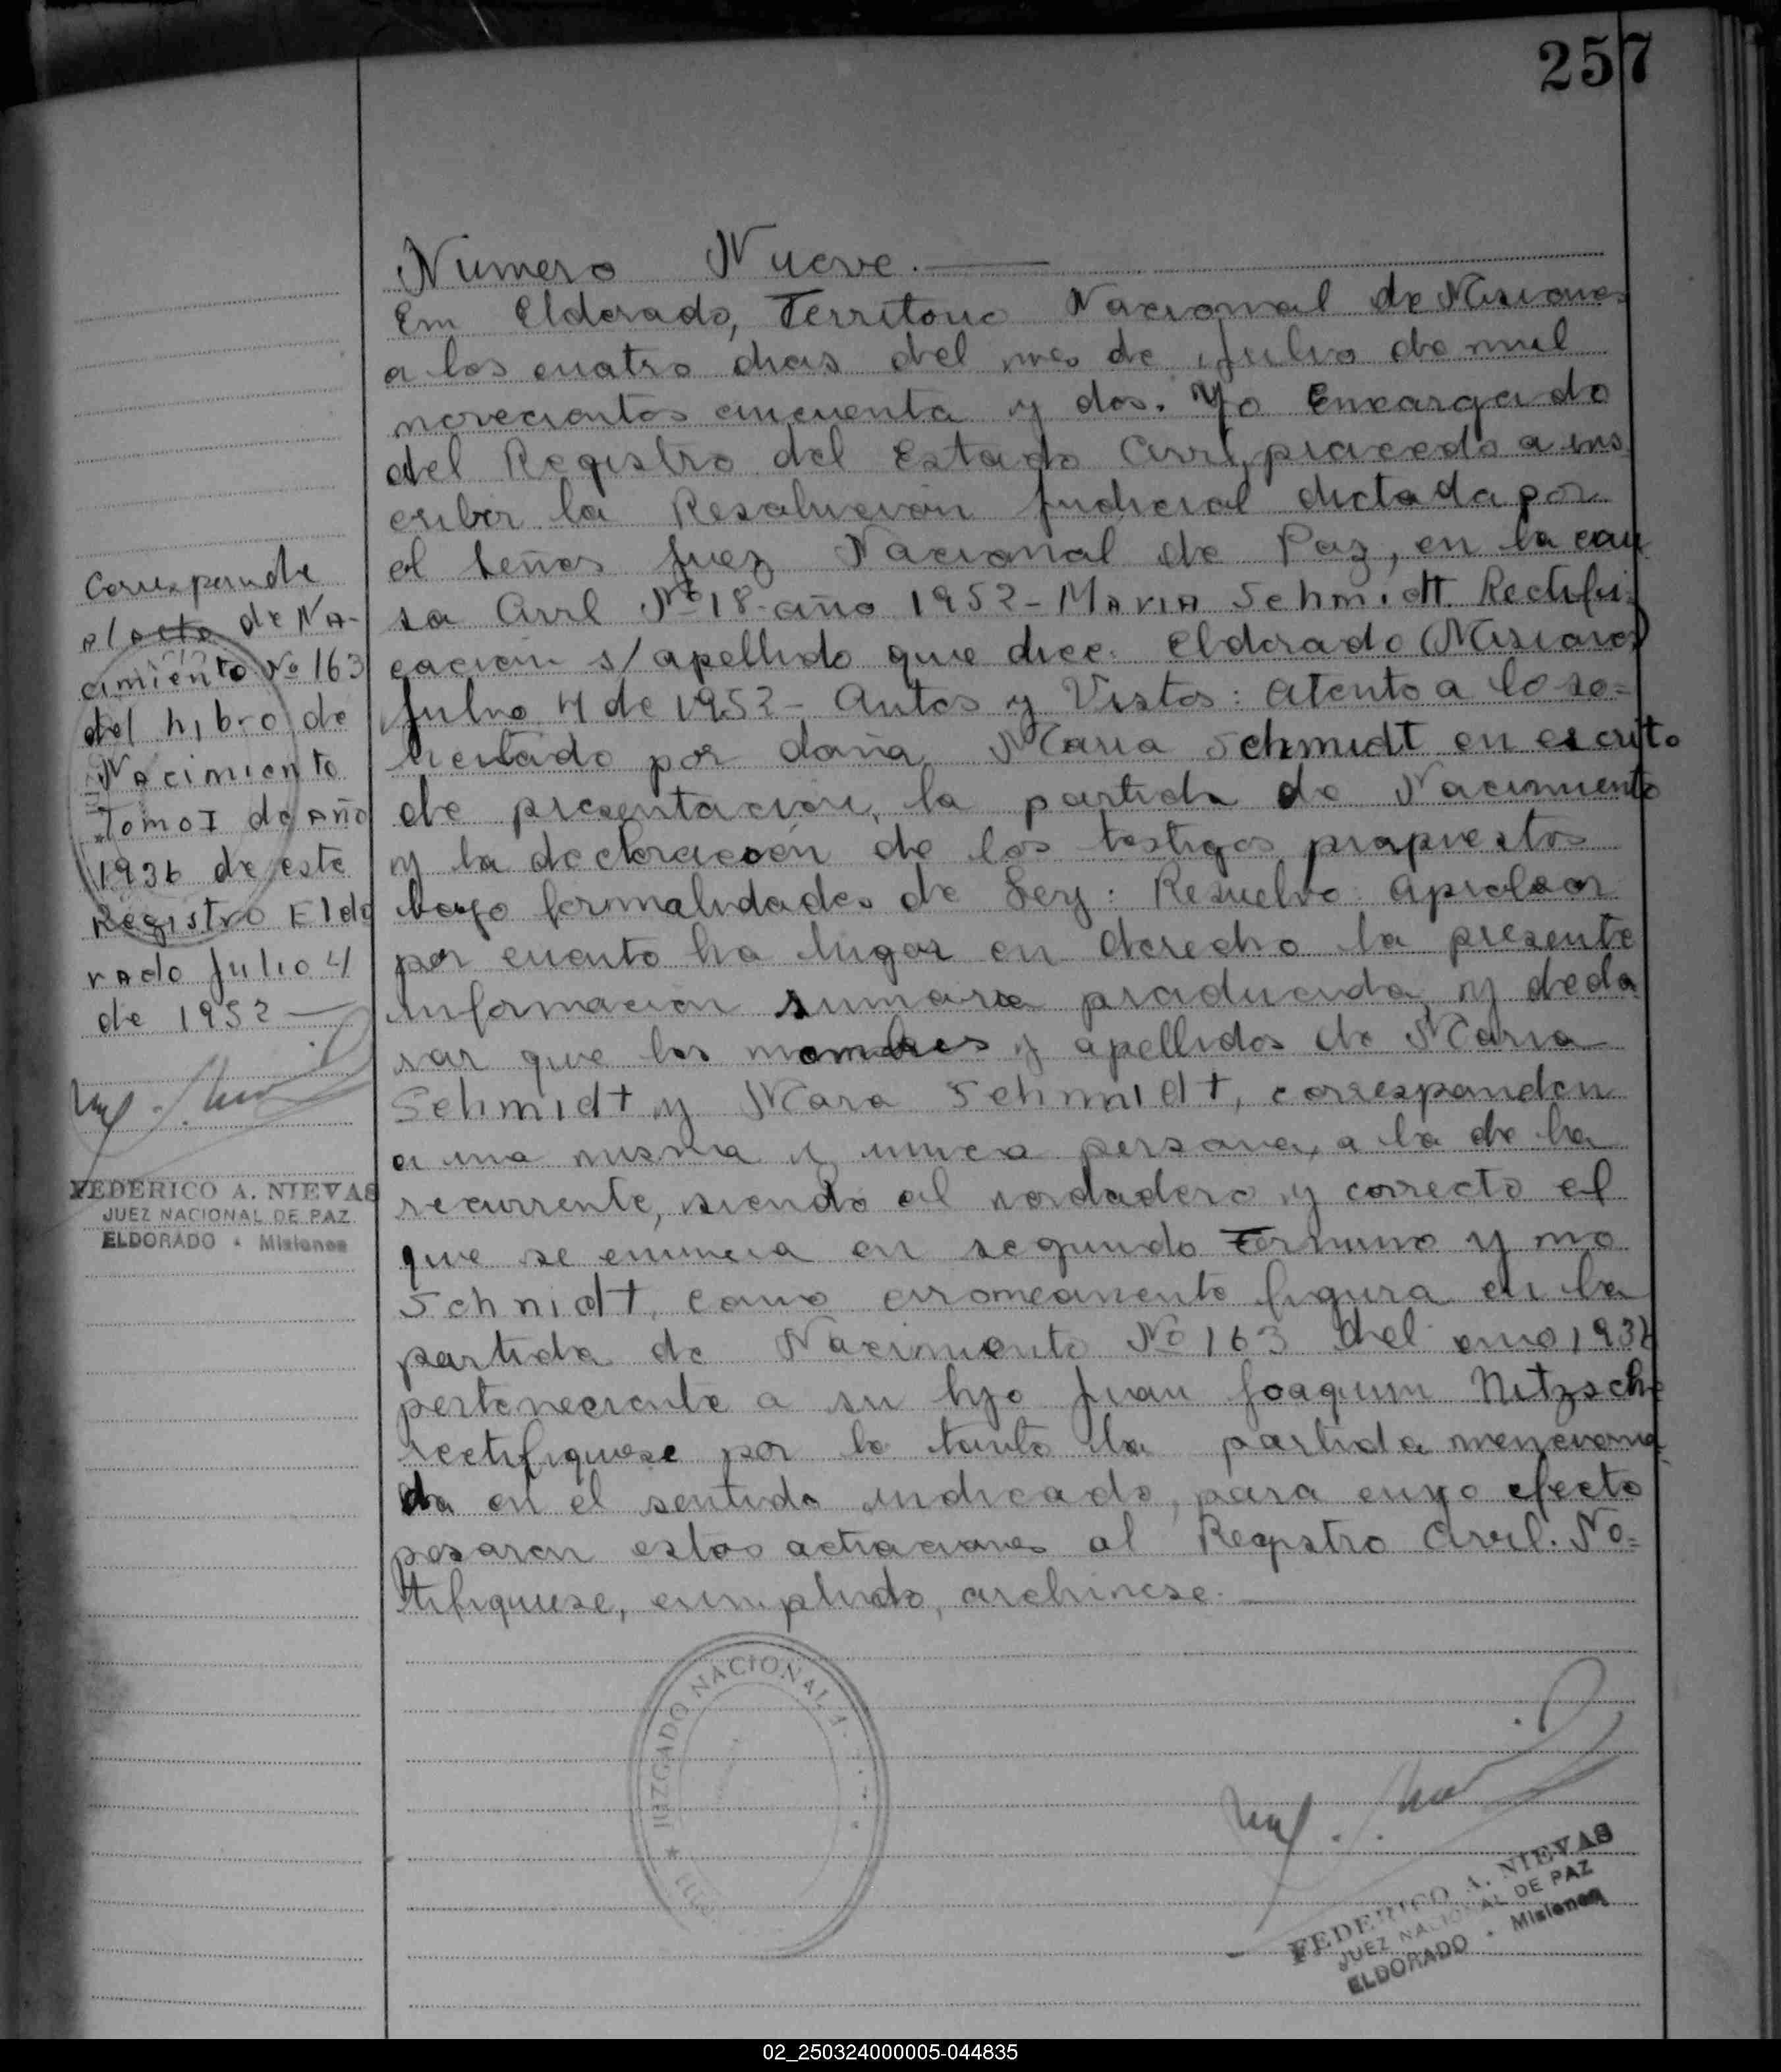 257
Numero Nueve.
En Eldorado, Territorio Nacional de Misiones
a los cuatro dias del mes de julio de mil
novecientos cincuenta y dos. Yo Encargado
del Registro del Estado Civil, procedo a ins
cribir la Resolución Judicial dictada por
el señor Juez Nacional de Paz, en la cau
sa Civil Nº 18-año 1952- MARIA Schmidt. Rectifi-
cación s/ apellido que dice: Eldorado (Misiones)
Julio 4 de 1952- Autos y Vistos: Atento a lo so=
licitado por doña Maria Schmidt en escrito
de presentación, la partida de Nacimiento
y la declaración de los testigos propuestos
bajo formalidades de Ley: Resuelvo: Aprobar
por cuanto ha lugar en derecho la presente
informacion sumaria producida y decla
rar que los nombres y apellidos de Maria
Schmidt y Mara Schmidt, corresponden
a una misma y unica persona, a la de la
recurrente, siendo el verdadero y correcto el
que se enuncia en segundo Termino y no
Schnidt, como erroneamente figura en la
partida de Nacimiento Nº 163 del año 1936
perteneciente a su hijo Juan Joaquin Nitzsche
rectifiquese por lo tanto la partida menciona
da en el sentido indicado, para cuyo efecto
pasaran estas actuaciones al Registro Civil. No=
tifiquese, cumplido, archivese.
Corresponde
al acta de NA-
cimiento Nº 163
del Libro de
Nacimiento
Tomo I de Año
1936 de este
Registro Eldo
rado Julio 4
de 1952
FEDERICO A. NIEVAS
JUEZ NACIONAL DE PAZ
ELDORADO - Misiones
JUZGADO NACIONAL
FEDERICO A. NIEVAS
JUEZ NACIONAL DE PAZ
ELDORADO - Misiones
02_250324000005-044835